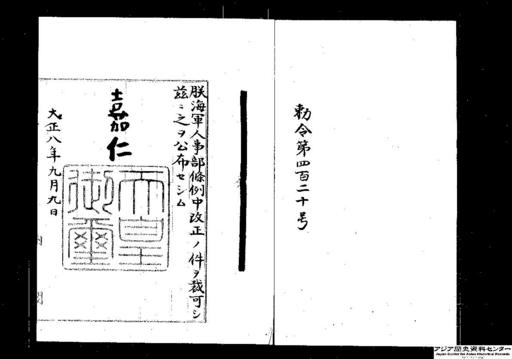 勅令第四百二十号
朕海軍人事部條例中改正ノ件ヲ裁可シ
茲ニ之ヲ公布セシム
嘉仁
天皇
御璽
大正八年九月九日
内
閣
アジア歴史資料センター
Japan Center for Asian Historical Records